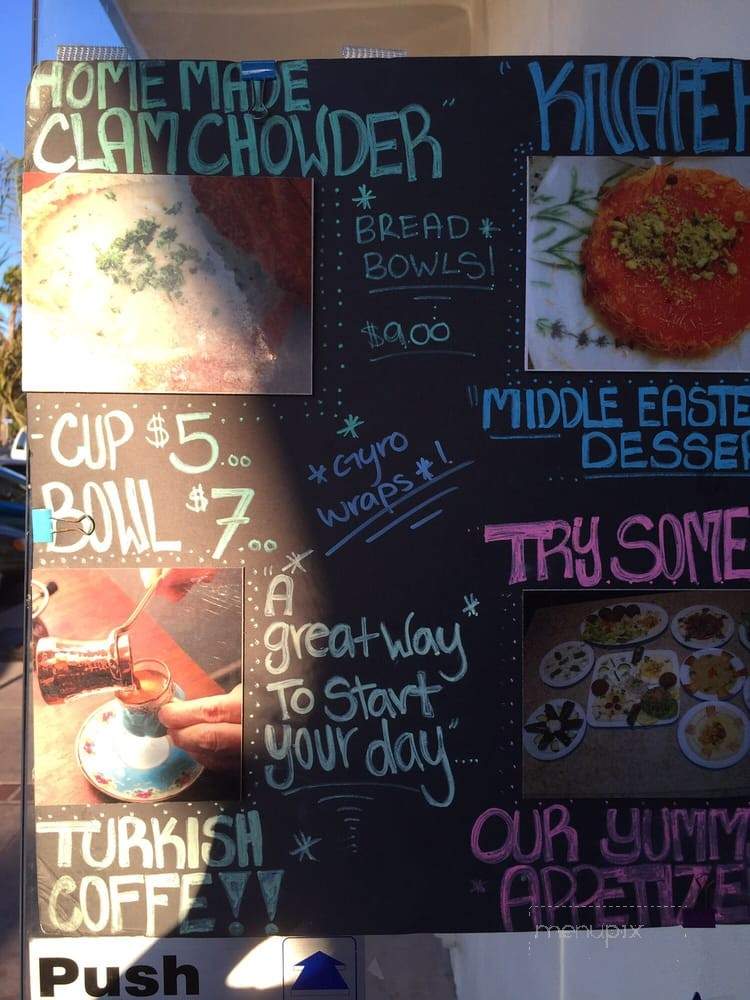 HOME MADE
CLAM CHOWDER"
* BREAD *
BOWLS!
$9.00
- CUP $5.00
BOWL $7.00
* Gyro
wraps *!
"A
great way
To Start
your day"...
TURKISH
COFFE!!
"KNAFEH
"MIDDLE EASTE
DESSER
TRY SOME
OUR YUMM
APPETIZE
Push
menupix